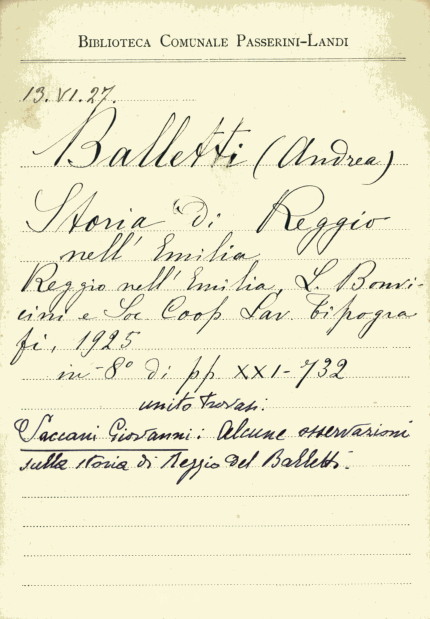 BIBLIOTECA COMUNALE PASSERINI-LANDI
13.VI.27.
Balletti (Andrea)
Storia di Reggio
nell'Emilia
Reggio nell'Emilia, L. Bonvi-
cini e Soc. Coop. Lav. Tipogra
fi, 1925
in-8° di pp. XXI-732
unito trovasi:
Saccani Giovanni: Alcune osservazioni
sulla storia di Reggio del Balletti.